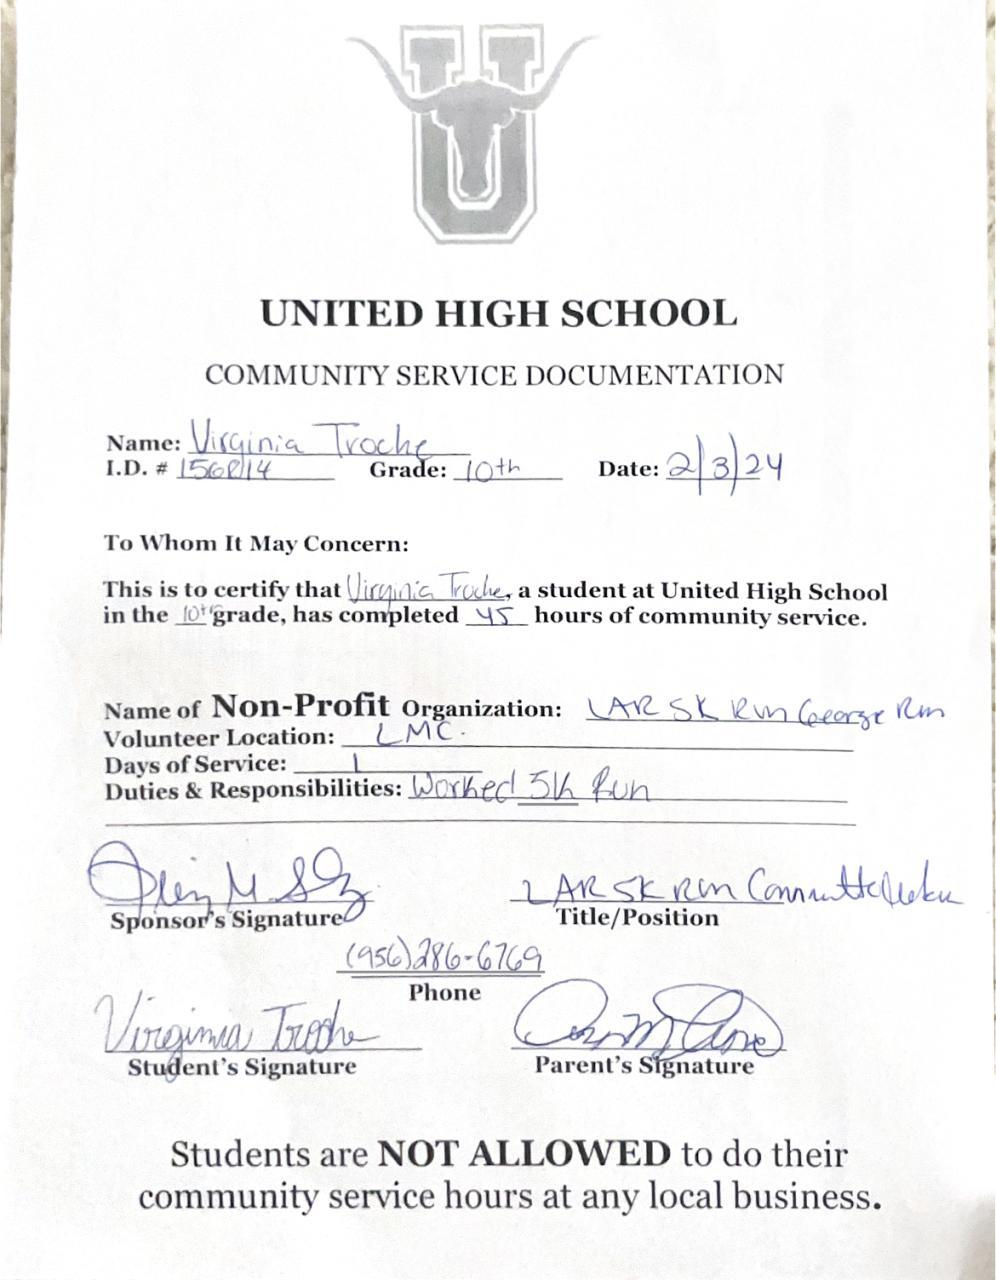 U
UNITED HIGH SCHOOL
COMMUNITY SERVICE DOCUMENTATION
Name: Virginia Troche
I.D. # Grade: 10th Date: 2/3/24
To Whom It May Concern:
This is to certify that Virginia Troche, a student at United High School
in the 10th grade, has completed 45 hours of community service.
Name of Non-Profit Organization: LAR 5K Run George Run
Volunteer Location: LMC.
Days of Service: 1
Duties & Responsibilities: Worked 5K Run
LAR 5K Run
Sponsor's Signature Title/Position
(956) 286-6769
Phone
Virginia Troche
Student's Signature Parent's Signature
Students are NOT ALLOWED to do their
community service hours at any local business.